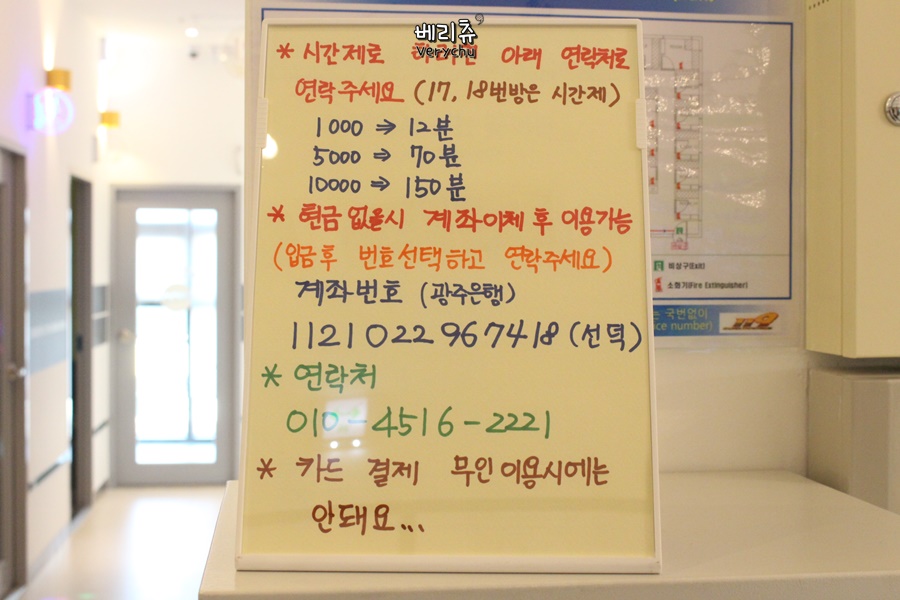 베리츄
Verychu
* 시간제로 하려면 아래 연락처로
연락주세요 (17, 18번방은 시간제)
1000 ⇒ 12분
5000 ⇒ 70분
10000 ⇒ 150분
* 현금없을시 계좌이체 후 이용가능
(입금후 번호선택하고 연락주세요)
계좌번호 (광주은행)
1121022967418 (선덕)
* 연락처
010-4516-2221
* 카드 결제 무인이용시에는
안돼요...
비상구(Exit)
소화기(Fire Extinguisher)
는 국번없이
nce number)